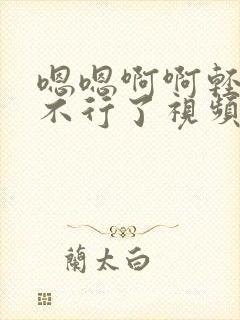 嗯嗯啊啊輕
不行了視頻
蘭太白